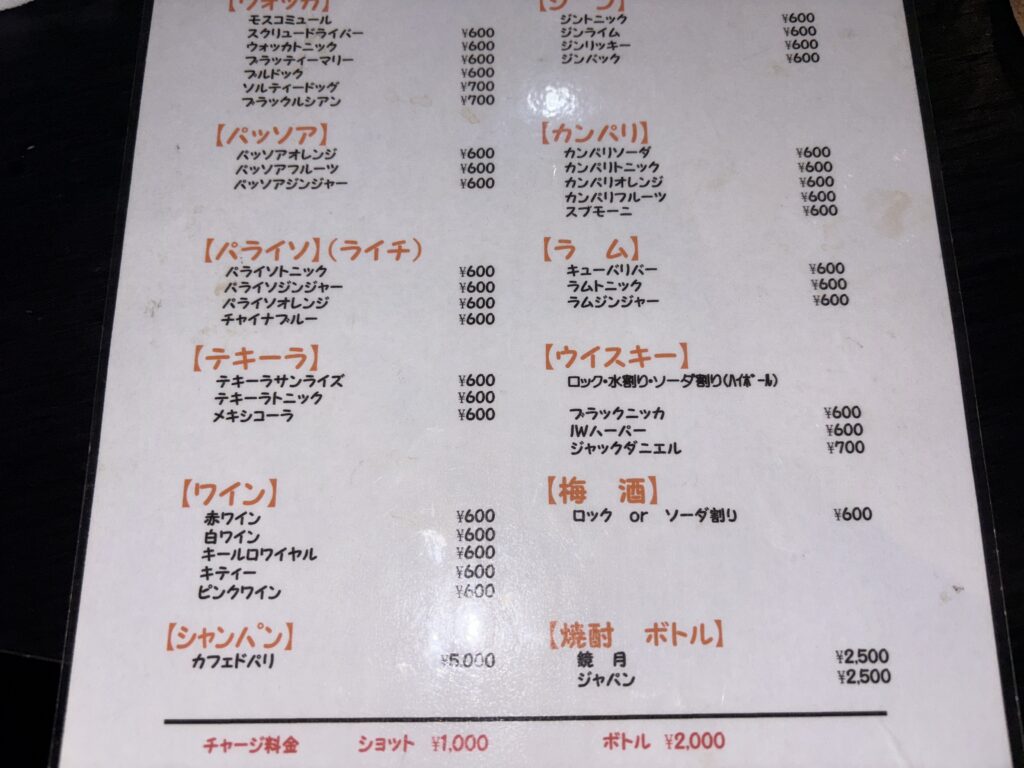 【ウォッカ】
モスコミュール
スクリュードライバー ¥600
ウォッカトニック ¥600
ブラッティーマリー ¥600
ブルドック ¥600
ソルティードッグ ¥700
ブラックルシアン ¥700
【パッソア】
パッソアオレンジ ¥600
パッソアフルーツ ¥600
パッソアジンジャー ¥600
【パライソ】(ライチ)
パライソトニック ¥600
パライソジンジャー ¥600
パライソオレンジ ¥600
チャイナブルー ¥600
【テキーラ】
テキーラサンライズ ¥600
テキーラトニック ¥600
メキシコーラ ¥600
【ワイン】
赤ワイン ¥600
白ワイン ¥600
キールロワイヤル ¥600
キティー ¥600
ピンクワイン ¥600
【シャンパン】
カフェドパリ ¥5,000
【ジン】
ジントニック ¥600
ジンライム ¥600
ジンリッキー ¥600
ジンバック ¥600
【カンパリ】
カンパリソーダ ¥600
カンパリトニック ¥600
カンパリオレンジ ¥600
カンパリフルーツ ¥600
スプモーニ ¥600
【ラ ム】
キューバリバー ¥600
ラムトニック ¥600
ラムジンジャー ¥600
【ウイスキー】
ロック・水割り・ソーダ割り(ﾊｲﾎﾞｰﾙ)
ブラックニッカ ¥600
IWハーパー ¥600
ジャックダニエル ¥700
【梅 酒】
ロック or ソーダ割り ¥600
【焼酎 ボトル】
鏡 月 ¥2,500
ジャパン ¥2,500
チャージ料金 ショット ¥1,000 ボトル ¥2,000